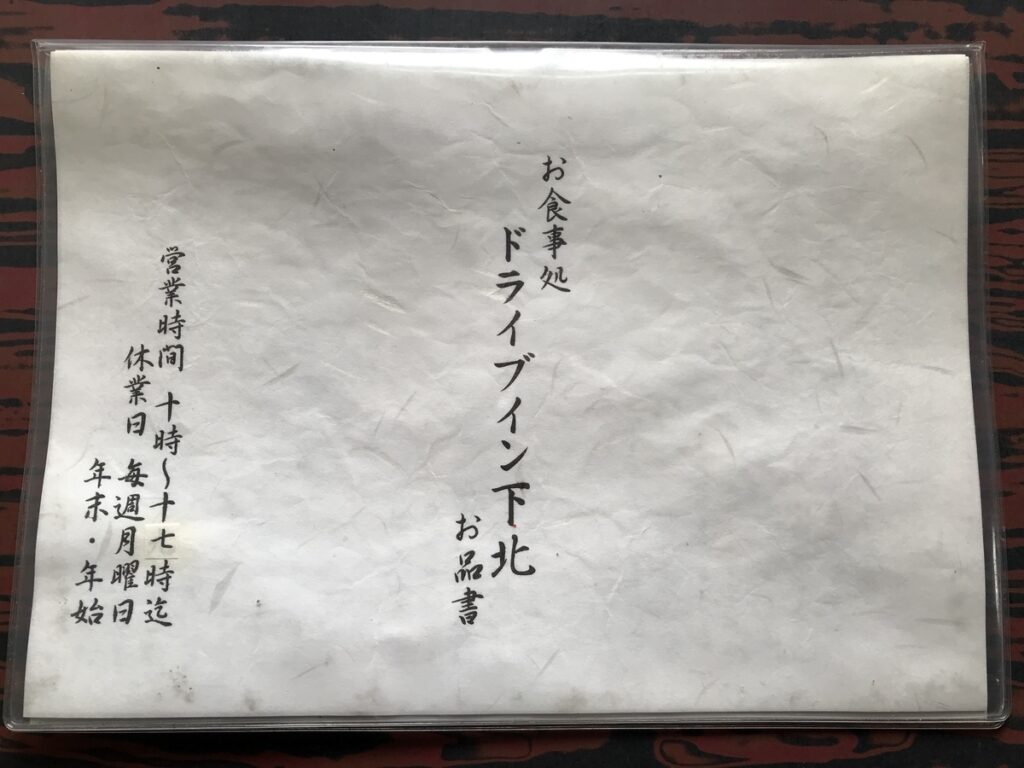 お食事処
ドライブイン下北
お品書
営業時間 十時～十七時迄
休業日 毎週月曜日
年末・年始